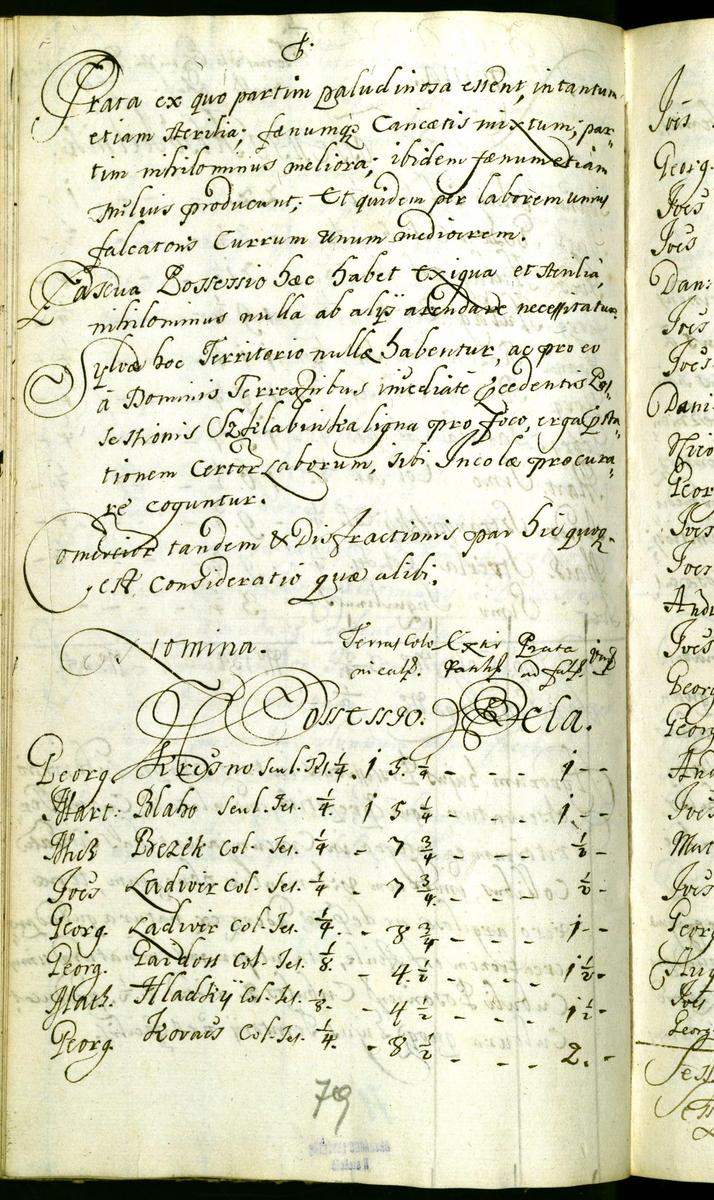 Prata ex quo partim paludinosa essent, in tantum
etiam sterilia; fænumq3 Caricetis mixtum; par-
tim nihilominus meliora; ibidem fænum etiam
milius producunt; Et quidem per laborem unius
falcatoris Currum unum mediocrem.
Pascua Possessio hæc habet exiqua et sterilia,
nihilominus nulla ab alijs arendare necessitatur.
Sylvæ hoc Territorio nullæ habentur, ac pro eo
a Dominis Terrestribus imediate præcedentis Pos-
sessionis Szklabinka ligna pro foco, erga præsta-
tionem certor Laborum, sibi Incolæ procura-
re coguntur.
Comercior tandem & Distractionis par hic quoq3
est consideratio quæ alibi.
Nomina. Terras Colo Extir Prata
nicalḡ. ad falḡ.
Possessio. Bela.
Georg Krcsno Scul. Ses. 1/4. 1 5. 1/4 - - - 1 - -
Mart: Blaho Scul. Ses. 1/4. 1 5 1/4 - - - 1 - -
Mich Bezék Col. Ses. 1/4 - 7 3/4 - - - 1/2 -
Joēs Ladiver Col. Ses. 1/4 - 7 3/4. - - - 1/2 -
Georg. Ladiver Col. Ses. 1/4. - 8 3/4 - - - 1 -
Georg. Gardoss Col. Ses. 1/8. - 4. 1/2 - - - 1 1/2 -
Math. Hladkÿ Col. Ses. 1/8. - 4 1/2 - - - 1 1/2 -
Georg. Kovacs Col. Ses. 1/4. - 8 1/2 - - - 2. -
79
Joēs
Georg.
Joēs
Joēs
Dan:
Joēs
Joēs
Dani
Nico
Geor
Joēs
Joēs
Andr
Joēs
Georg
Georg
And
Joēs
Mat
Joēs
Georg
Aug
Joēs
Georg